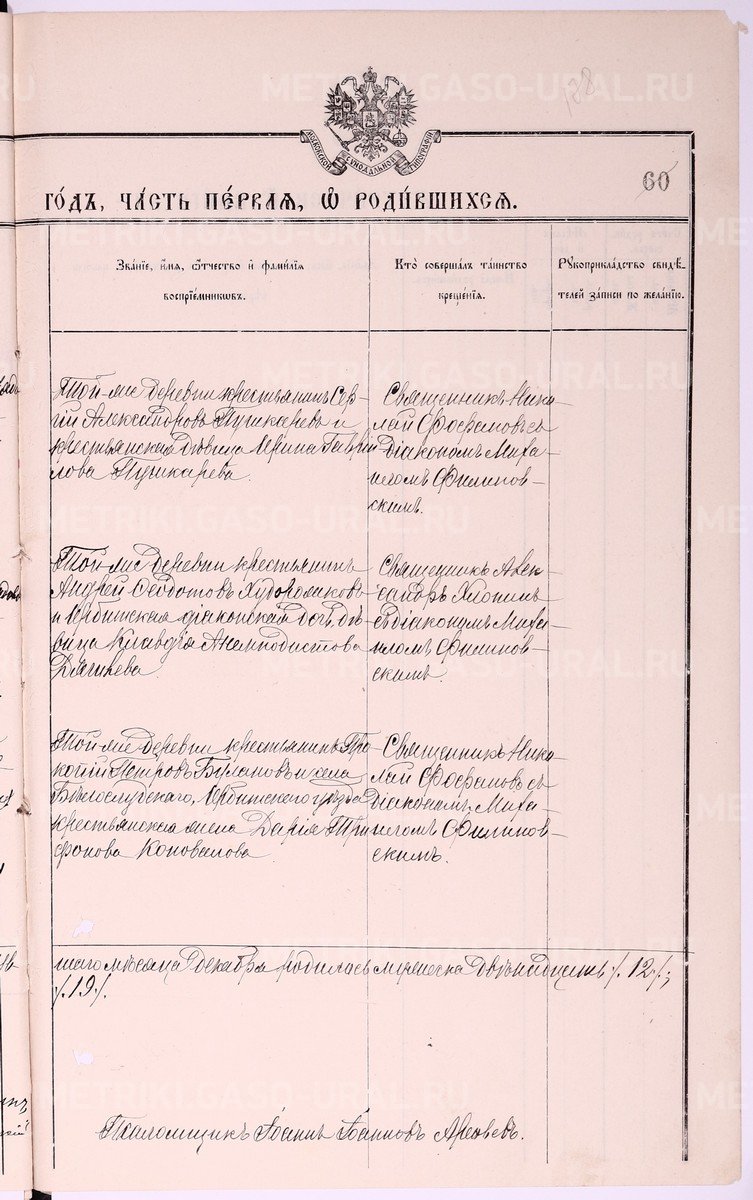 METRIKI.GASO-URAL.RU
188
МОСКОВСКОЙ СѴНОДАЛЬНОЙ ТИПОГРАФІИ
60
ГО́ДЪ, ЧА́СТЬ ПЕ́РВАЯ, Ѽ РОДИ́ВШИХСЯ.
Зва́нїе, и҆́мя, ѻ҆́тчество и҆ фами́лїя
воспрїе́мникѡвъ.
Кто̀ соверша́лъ та́инство
креще́нїя.
Рꙋкоприкла́дство свидѣ́-
телей за́писи по жела́нїю.
Той-же деревни крестьянинъ Сер-
гій Александровъ Пушкаревъ и
крестьянская дѣвица Ирина Гаврі
лова Пушкарева.
Священникъ Нико-
лай Ѳофановъ съ
діакономъ Миха-
иломъ Филинов-
скимъ.
Той-же деревни крестьянинъ
Андрей Ѳедотовъ Худорожковъ
и Ирбитская діаконская дочь дѣ-
вица Клавдія Анемподистова
Дягилева.
Священникъ Алек-
сандръ Хлопинъ
съ діакономъ Миха-
иломъ Филинов-
скимъ.
Той-же деревни крестьянинъ Про
копій Петровъ Булановъ и села
Бѣлослудского, Ирбитскаго уѣзда
крестьянская жена Дарія Три
фонова Коновалова
Священникъ Нико-
лай Ѳофановъ съ
діакономъ Миха-
иломъ Филинов-
скимъ.
шаго мѣсяца Декабря родилось мужеска двѣнадцать /.12./;
/.19./.
Псаломщикъ Іоаннъ Іоанновъ Арефьевъ.